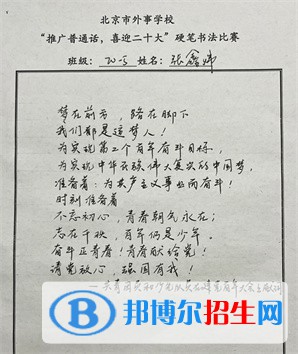 北京市外事学校
“推广普通话，喜迎二十大”硬笔书法比赛
班级： 姓名：张鑫
梦在前方，路在脚下
我们都是追梦人！
为实现第二个百年奋斗目标，
为实现中华民族伟大复兴的中国梦，
准备着：为共产主义事业而奋斗！
时刻准备着
不忘初心，青春朝气永在；
志在千秋，百年仍是少年，
奋斗正青春！青春献给党！
请党放心，强国有我！
——共青团员和少先队员 建党百年大会
邦博尔招生网